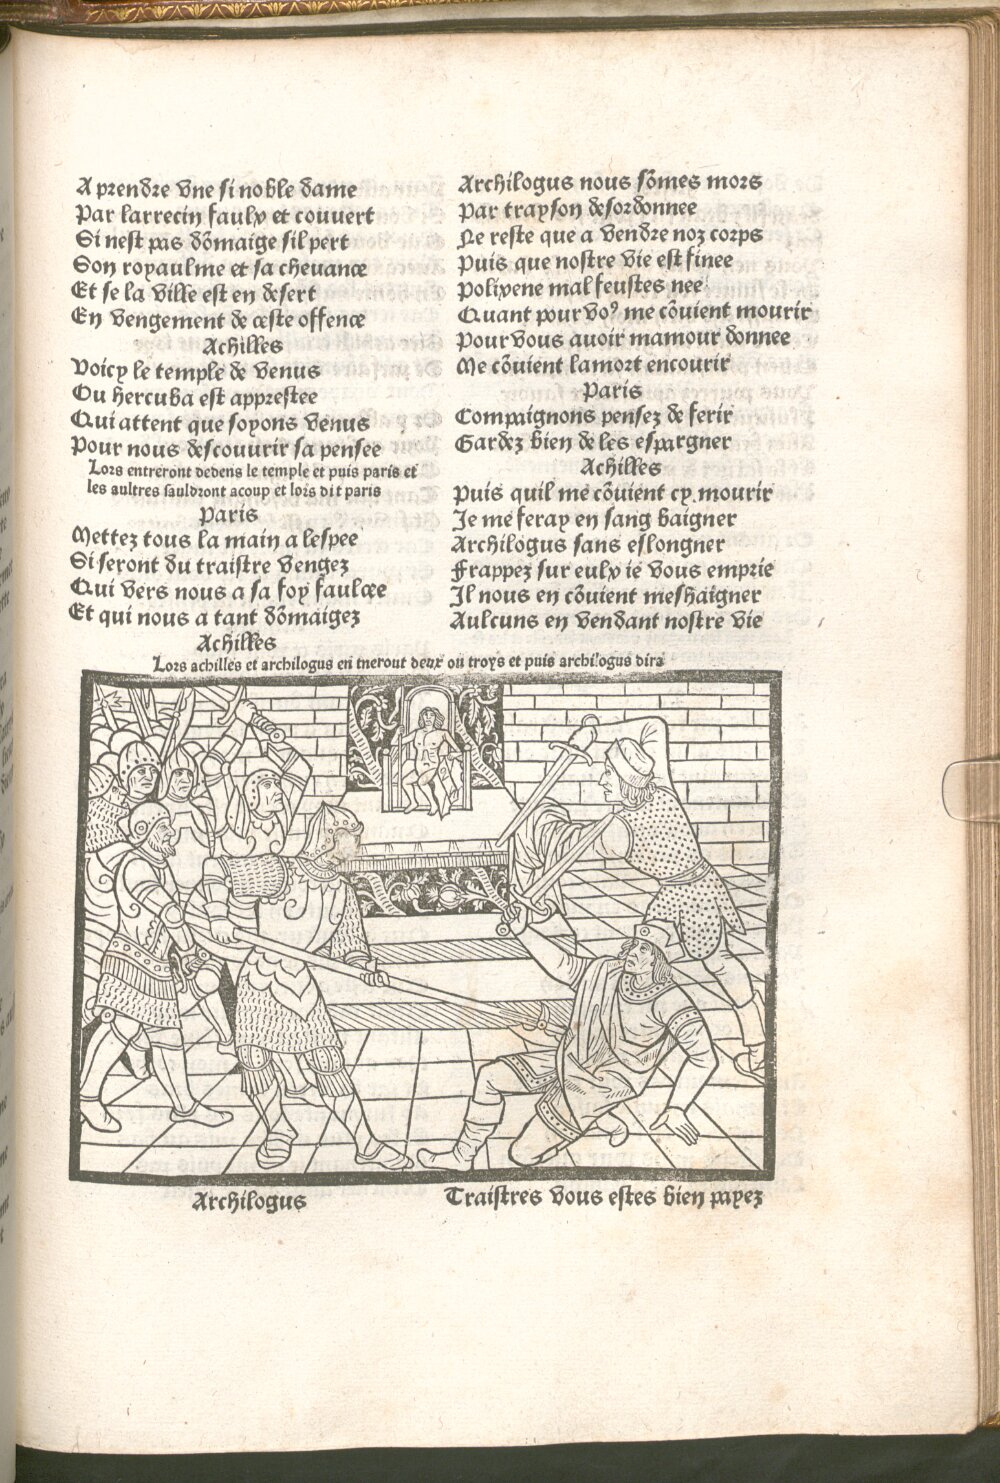 A prendre vne si noble dame
Par larrecin faulx et couuert
Si nest pas dõmaige sil pert
Son royaulme et sa cheuance
Et se la ville est en desert
En vengement de ceste offence
Achilles
Voicy le temple de venus
Ou hercuba est apprestee
Qui attent que soyons venus
Pour nous descouurir sa pensee
Lors entreront dedens le temple et puis paris et
les aultres sauldront acoup et lors dit paris
Paris
Mettez tous la main a lespee
Si seront du traistre vengez
Qui vers nous a sa foy faulcee
Et qui nous a tant dõmaigez
Achilles
Archilogus nous sõmes mors
Par trayson desordonnee
Ne reste que a vendre noz corps
Puis que nostre vie est finee
Polixene mal feustes nee
Quant pour voꝰ me cõuient mourir
Pour vous auoir mamour donnee
Me cõuient lamort encourir
Paris
Compaignons pensez de ferir
Gardez bien de les espargner
Achilles
Puis quil me cõuient cy mourir
Je me feray en sang baigner
Archilogus sans eslongner
Frappez sur eulx ie vous emprie
Il nous en cõuient meshaigner
Aulcuns en vendant nostre vie
Lors achilles et archilogus en tuerout deux ou troys et puis archilogus dira
Archilogus
Traistres vous estes bien payez